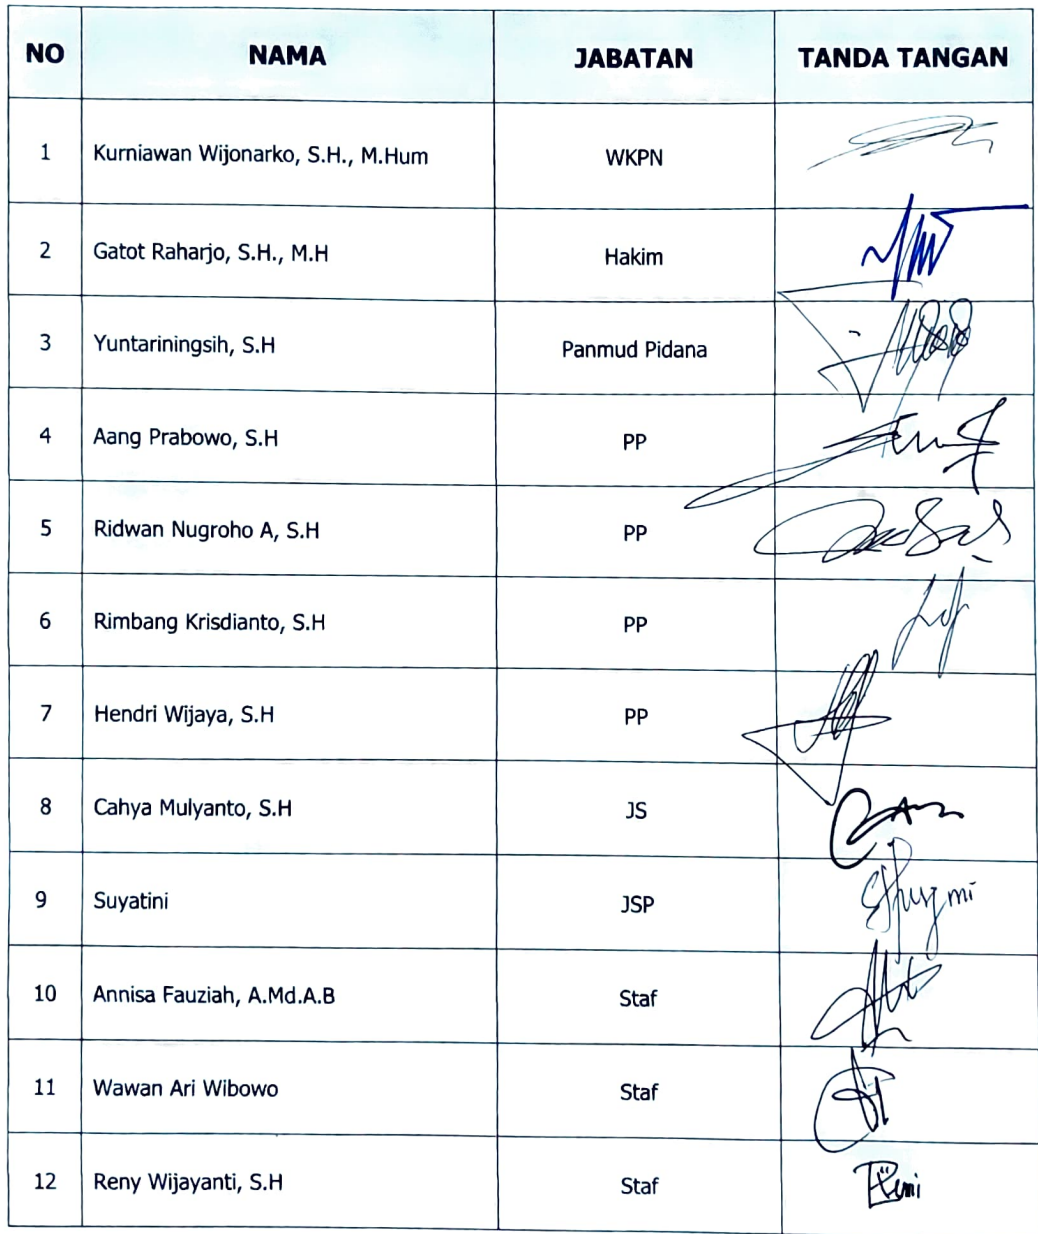 NO NAMA JABATAN TANDA TANGAN
1 Kurniawan Wijonarko, S.H., M.Hum WKPN
2 Gatot Raharjo, S.H., M.H Hakim
3 Yuntariningsih, S.H Panmud Pidana
4 Aang Prabowo, S.H PP
5 Ridwan Nugroho A, S.H PP
6 Rimbang Krisdianto, S.H PP
7 Hendri Wijaya, S.H PP
8 Cahya Mulyanto, S.H JS
9 Suyatini JSP
10 Annisa Fauziah, A.Md.A.B Staf
11 Wawan Ari Wibowo Staf
12 Reny Wijayanti, S.H Staf